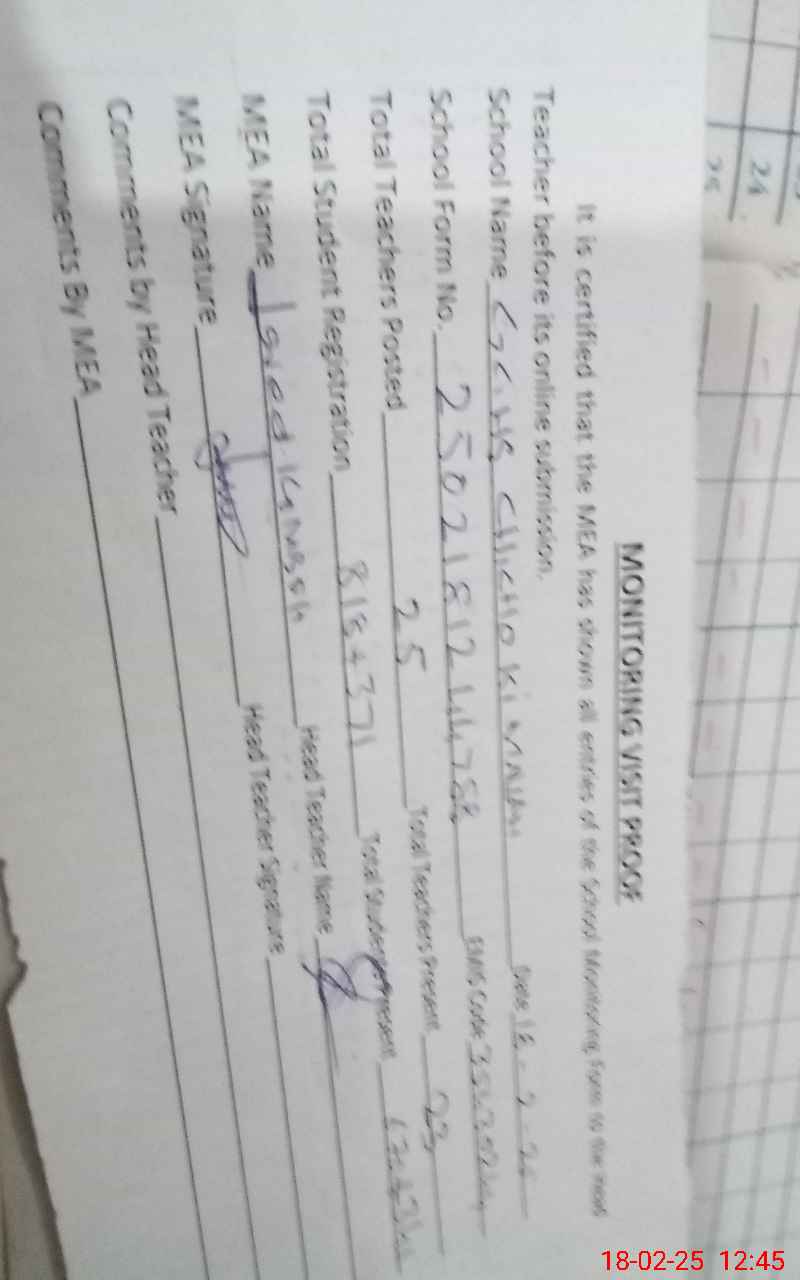 24
25
MONITORING VISIT PROOF
It is certified that the MEA has shown all entries of the School Monitoring Form to the Head
Teacher before its online submission.
School Name Date 18-2-25
School Form No. 25021812 44788 EMIS Code
Total Teachers Posted 25 Total Teachers Present 23
Total Student Registration 818+371 Total Student Present
MEA Name Javed Head Teacher Name
MEA Signature Head Teacher Signature
Comments by Head Teacher
Comments By MEA
18-02-25 12:45